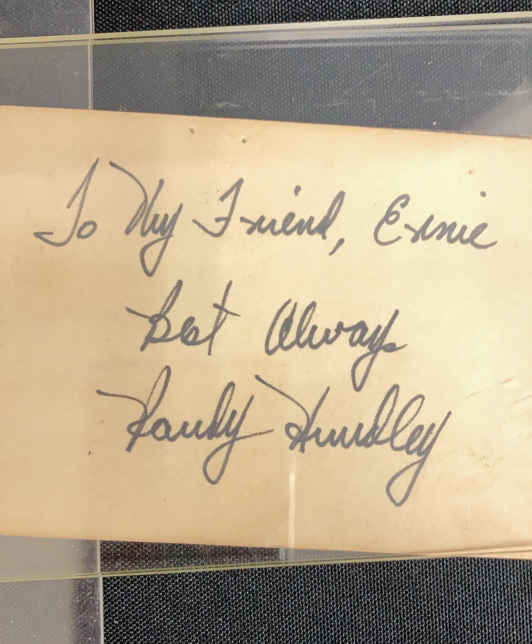 To My Friend, Ernie
Best Always
Randy Hundley